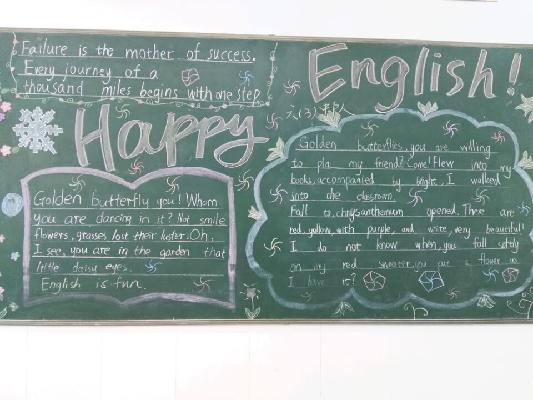 Failure is the mother of success.
Every journey of a
thousand miles begins with one step
Happy
English!
六(3)
Golden butterfly you! Whom
you are dancing in it? Not smile
flowers, grasses lost their luster. Oh,
I see, you are in the garden that
little daisy eyes.
English is fun.
Golden butterflies, you are willing
to pla my friend? Come! Flew into my
books, accompanied by bright, I walked
into the classroom.
Fall to, chrysanthemum opened. There are
red, yellow, with purple, and write, very beautiful!
I do not know when, you fall safely
on my red sweater, you put a flower as
I have is?